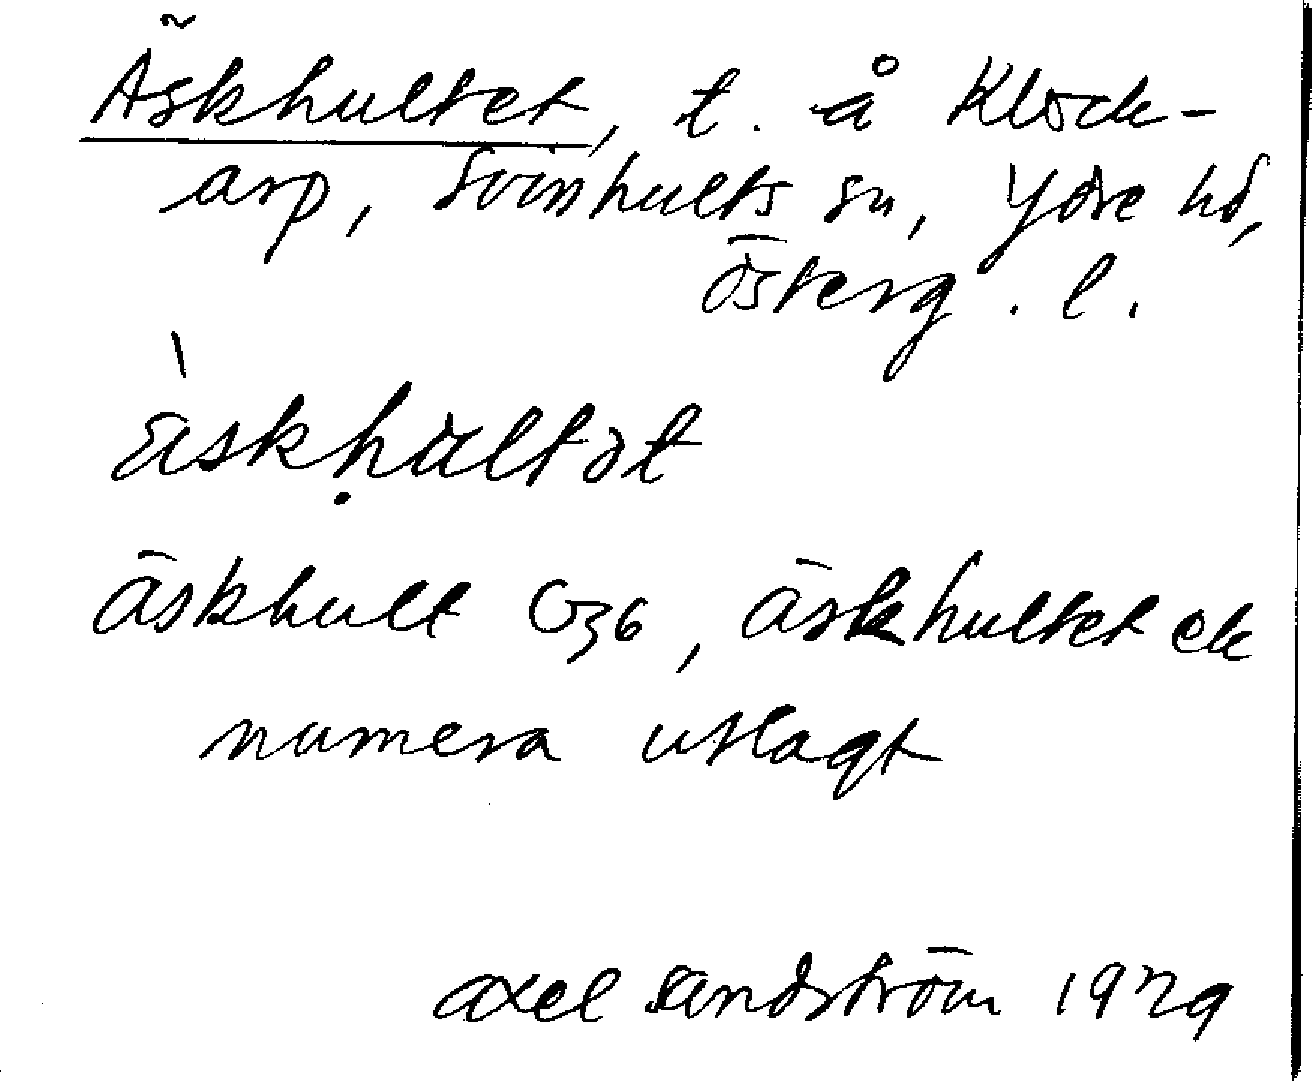 Äskhultet, t. å Klock-
arp, Svinhults sn, Ydre hd,
Österg. l.
äskhúltət
Äskhult G36, Äskhultet ek
numera utlagt
Axel Sandström 1929